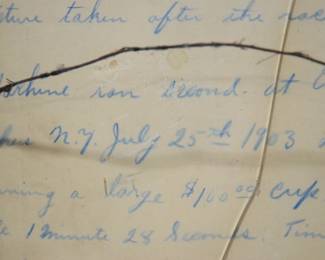 ture taken after the race
machine ran second at
N.Y. July 25th 1903
ning a large $100.00 cup
1 Minute 28 Seconds. Tim